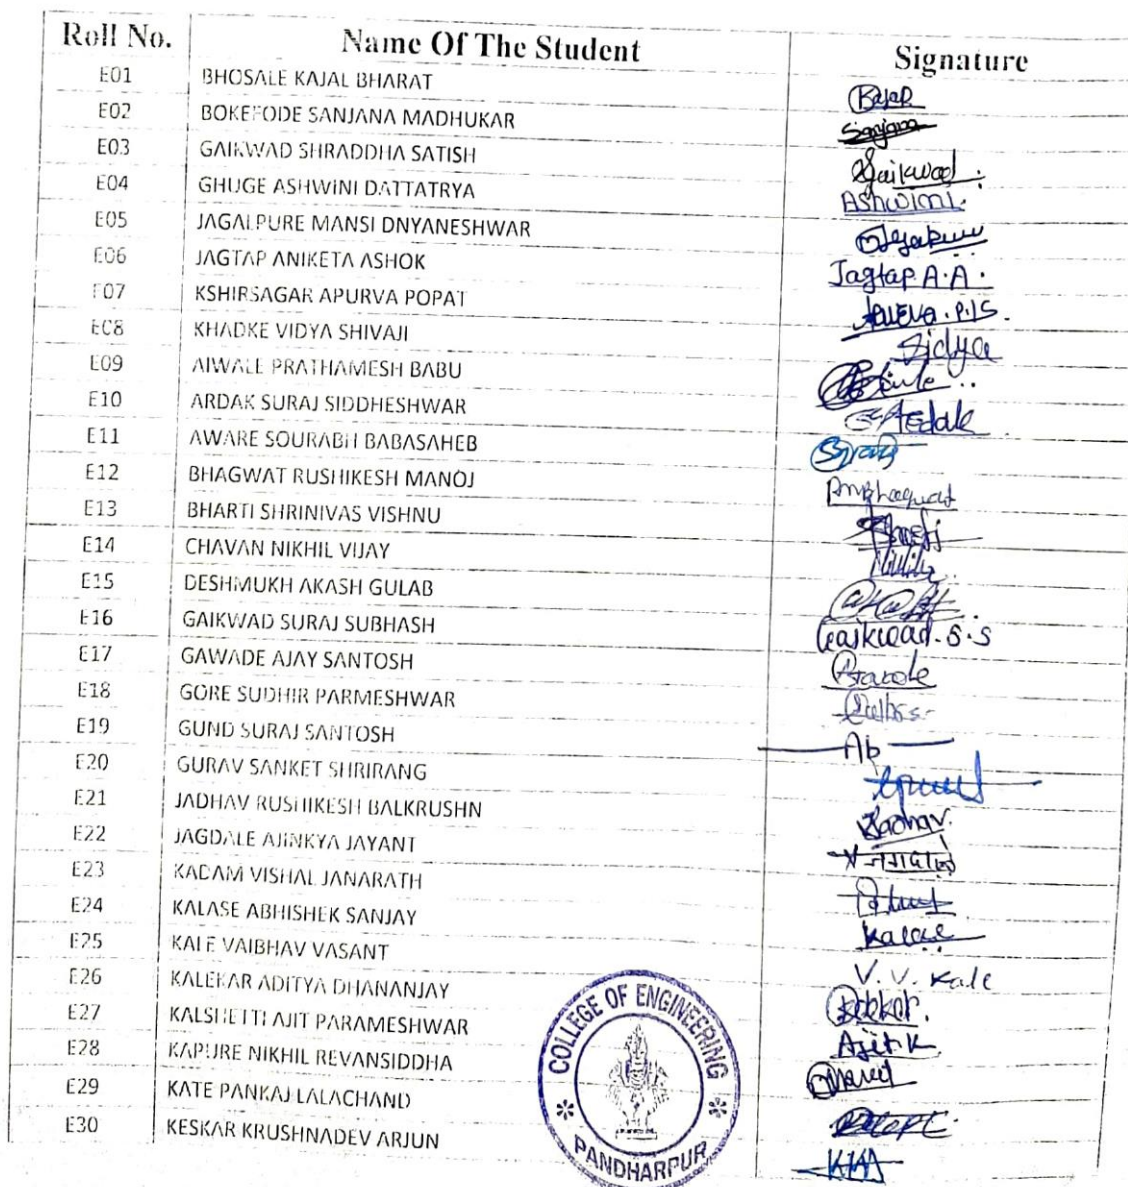 Roll No. Name Of The Student Signature
E01 BHOSALE KAJAL BHARAT Kajal
E02 BOKEFODE SANJANA MADHUKAR Sanjana
E03 GAIKWAD SHRADDHA SATISH Gaikwad
E04 GHUGE ASHWINI DATTATRYA Ashwini
E05 JAGALPURE MANSI DNYANESHWAR
E06 JAGTAP ANIKETA ASHOK Jagtap A.A.
E07 KSHIRSAGAR APURVA POPAT
E08 KHADKE VIDYA SHIVAJI Vidya
E09 AIWALE PRATHAMESH BABU
E10 ARDAK SURAJ SIDDHESHWAR
E11 AWARE SOURABH BABASAHEB
E12 BHAGWAT RUSHIKESH MANOJ
E13 BHARTI SHRINIVAS VISHNU
E14 CHAVAN NIKHIL VIJAY
E15 DESHMUKH AKASH GULAB
E16 GAIKWAD SURAJ SUBHASH Gaikwad.S.S
E17 GAWADE AJAY SANTOSH
E18 GORE SUDHIR PARMESHWAR
E19 GUND SURAJ SANTOSH Ab
E20 GURAV SANKET SHRIRANG
E21 JADHAV RUSHIKESH BALKRUSHN Jadhav.
E22 JAGDALE AJINKYA JAYANT
E23 KADAM VISHAL JANARATH
E24 KALASE ABHISHEK SANJAY Kalase
E25 KALE VAIBHAV VASANT V. V. Kale
E26 KALEKAR ADITYA DHANANJAY
E27 KALSHETTI AJIT PARAMESHWAR Ajit K
E28 KAPURE NIKHIL REVANSIDDHA
E29 KATE PANKAJ LALACHAND
E30 KESKAR KRUSHNADEV ARJUN KKA
COLLEGE OF ENGINEERING
PANDHARPUR